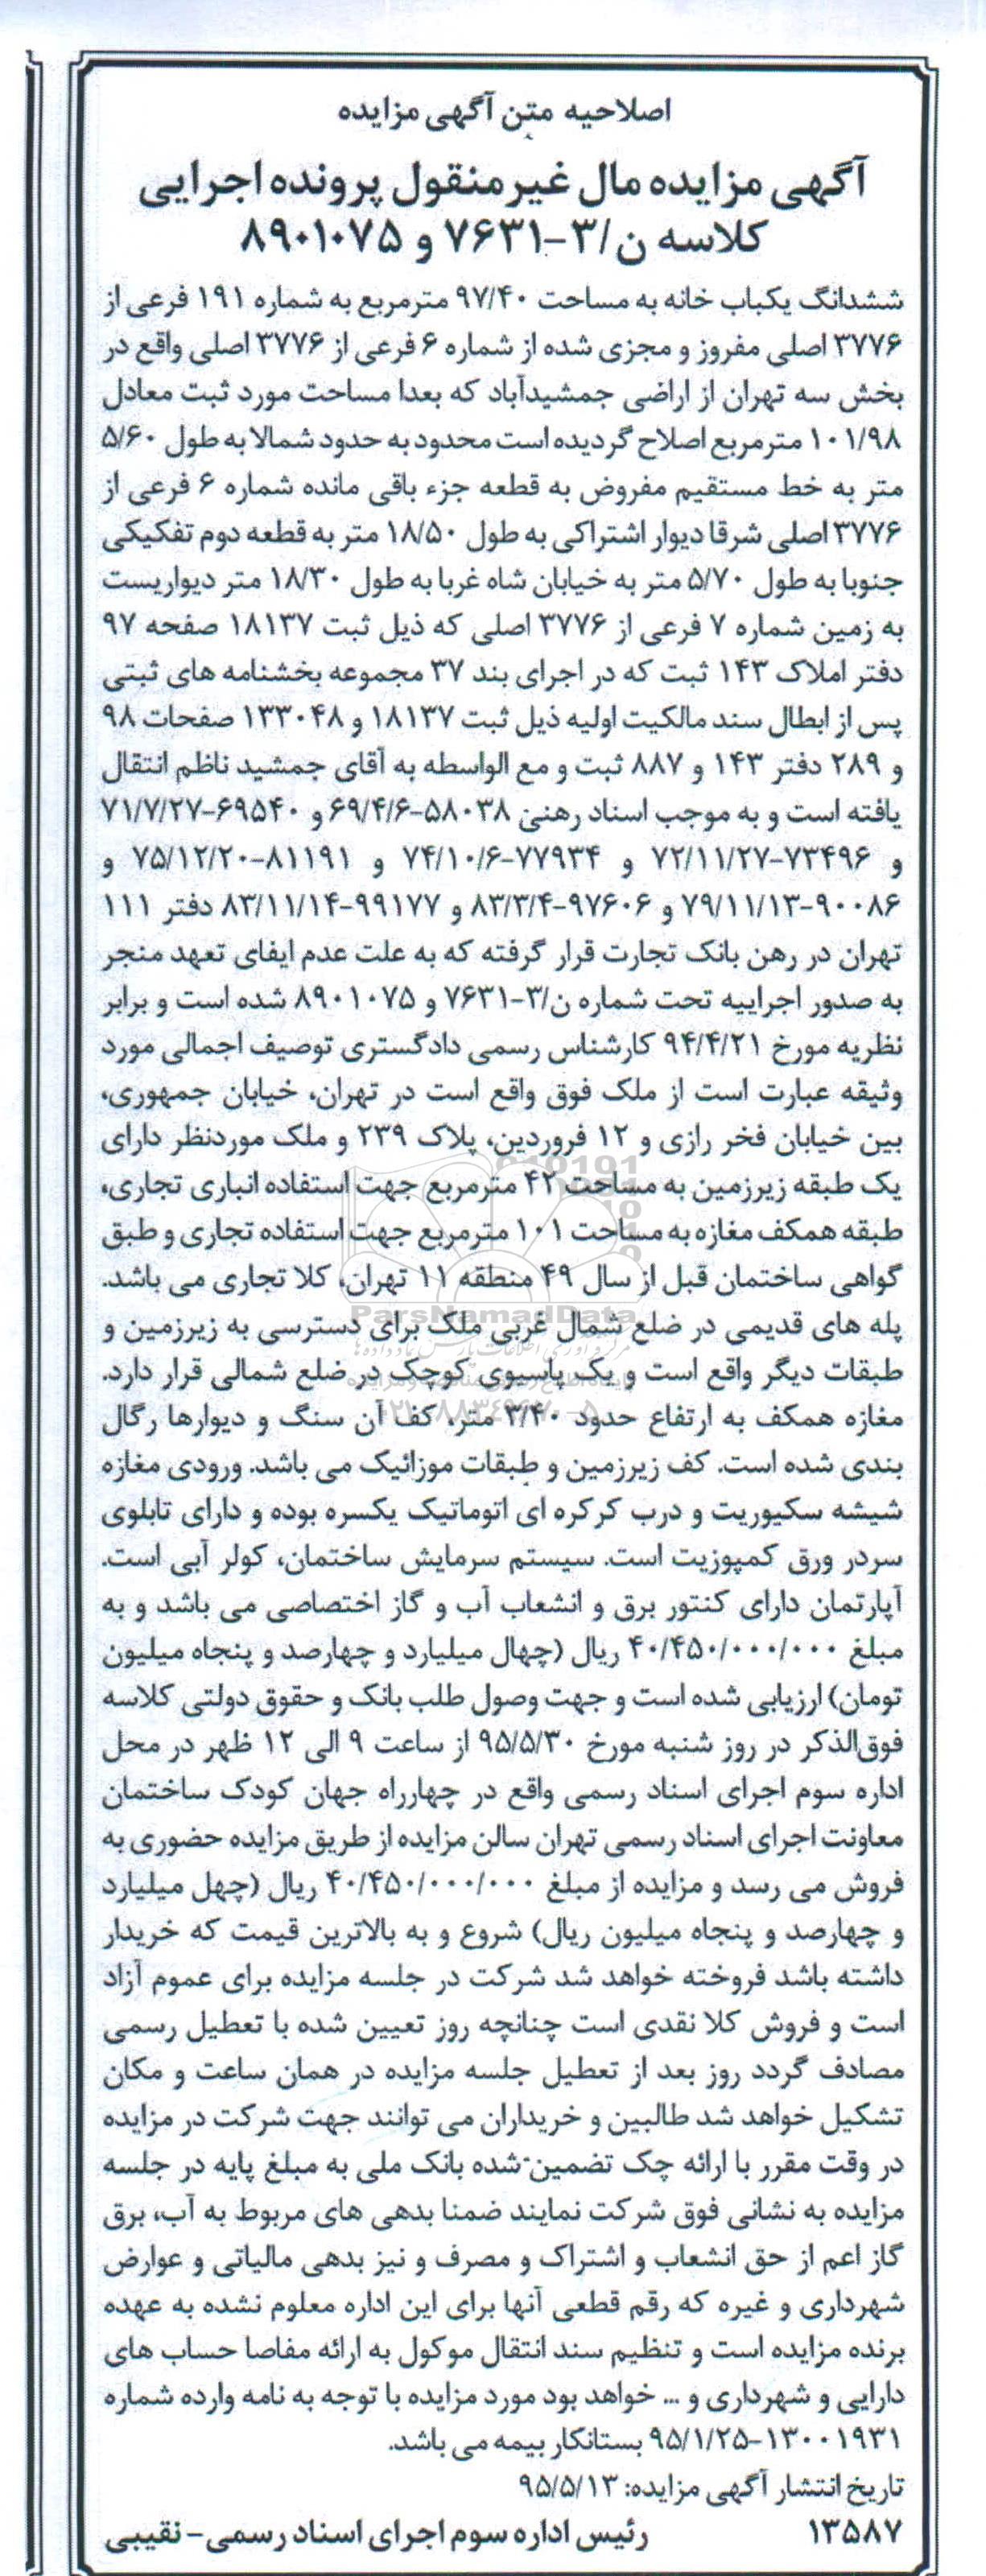 اصلاحیه متن آگهی مزایده
آگهی مزایده مال غیرمنقول پرونده اجرایی
کلاسه ن/۳-۷۶۳۱ و ۸۹۰۱۰۷۵
ششدانگ یکباب خانه به مساحت ۹۷/۴۰ مترمربع به شماره ۱۹۱ فرعی از
۳۷۷۶ اصلی مفروز و مجزی شده از شماره ۶ فرعی از ۳۷۷۶ اصلی واقع در
بخش سه تهران از اراضی جمشیدآباد که بعدا مساحت مورد ثبت معادل
۱۰۱/۹۸ مترمربع اصلاح گردیده است محدود به حدود شمالا به طول ۵/۶۰
متر به خط مستقیم مفروض به قطعه جزء باقی مانده شماره ۶ فرعی از
۳۷۷۶ اصلی شرقا دیوار اشتراکی به طول ۱۸/۵۰ متر به قطعه دوم تفکیکی
جنوبا به طول ۵/۷۰ متر به خیابان شاه غربا به طول ۱۸/۳۰ متر دیواریست
به زمین شماره ۷ فرعی از ۳۷۷۶ اصلی که ذیل ثبت ۱۸۱۳۷ صفحه ۹۷
دفتر املاک ۱۴۳ ثبت که در اجرای بند ۳۷ مجموعه بخشنامه های ثبتی
پس از ابطال سند مالکیت اولیه ذیل ثبت ۱۸۱۳۷ و ۱۳۳۰۴۸ صفحات ۹۸
و ۲۸۹ دفتر ۱۴۳ و ۸۸۷ ثبت و مع الواسطه به آقای جمشید ناظم انتقال
یافته است و به موجب اسناد رهنی ۵۸۰۳۸-۶۹/۴/۶ و ۶۹۵۴۰-۷۱/۷/۲۷
و ۷۳۴۹۶-۷۲/۱۱/۲۷ و ۷۷۹۳۴-۷۴/۱۰/۶ و ۸۱۱۹۱-۷۵/۱۲/۲۰ و
۹۰۰۸۶-۷۹/۱۱/۱۳ و ۹۷۶۰۶-۸۳/۳/۴ و ۹۹۱۷۷-۸۳/۱۱/۱۴ دفتر ۱۱۱
تهران در رهن بانک تجارت قرار گرفته که به علت عدم ایفای تعهد منجر
به صدور اجراییه تحت شماره ن/۳-۷۶۳۱ و ۸۹۰۱۰۷۵ شده است و برابر
نظریه مورخ ۹۴/۴/۲۱ کارشناس رسمی دادگستری توصیف اجمالی مورد
وثیقه عبارت است از ملک فوق واقع است در تهران، خیابان جمهوری،
بین خیابان فخر رازی و ۱۲ فروردین، پلاک ۲۳۹ و ملک موردنظر دارای
یک طبقه زیرزمین به مساحت ۴۲ مترمربع جهت استفاده انباری تجاری،
طبقه همکف مغازه به مساحت ۱۰۱ مترمربع جهت استفاده تجاری و طبق
گواهی ساختمان قبل از سال ۴۹ منطقه ۱۱ تهران، کلا تجاری می باشد.
ParsNamadData
پله های قدیمی در ضلع شمال غربی ملک برای دسترسی به زیرزمین و
طبقات دیگر واقع است و یک پاسیوی کوچک در ضلع شمالی قرار دارد.
مغازه همکف به ارتفاع حدود ۳/۴۰ متر، کف آن سنگ و دیوارها رگال
بندی شده است. کف زیرزمین و طبقات موزائیک می باشد. ورودی مغازه
شیشه سکیوریت و درب کرکره ای اتوماتیک یکسره بوده و دارای تابلوی
سردر ورق کمپوزیت است. سیستم سرمایش ساختمان، کولر آبی است.
آپارتمان دارای کنتور برق و انشعاب آب و گاز اختصاصی می باشد و به
مبلغ ۴۰/۴۵۰/۰۰۰/۰۰۰ ریال (چهال میلیارد و چهارصد و پنجاه میلیون
تومان) ارزیابی شده است و جهت وصول طلب بانک و حقوق دولتی کلاسه
فوق‌الذکر در روز شنبه مورخ ۹۵/۵/۳۰ از ساعت ۹ الی ۱۲ ظهر در محل
اداره سوم اجرای اسناد رسمی واقع در چهارراه جهان کودک ساختمان
معاونت اجرای اسناد رسمی تهران سالن مزایده از طریق مزایده حضوری به
فروش می رسد و مزایده از مبلغ ۴۰/۴۵۰/۰۰۰/۰۰۰ ریال (چهل میلیارد
و چهارصد و پنجاه میلیون ریال) شروع و به بالاترین قیمت که خریدار
داشته باشد فروخته خواهد شد شرکت در جلسه مزایده برای عموم آزاد
است و فروش کلا نقدی است چنانچه روز تعیین شده با تعطیل رسمی
مصادف گردد روز بعد از تعطیل جلسه مزایده در همان ساعت و مکان
تشکیل خواهد شد طالبین و خریداران می توانند جهت شرکت در مزایده
در وقت مقرر با ارائه چک تضمین شده بانک ملی به مبلغ پایه در جلسه
مزایده به نشانی فوق شرکت نمایند ضمنا بدهی های مربوط به آب، برق
گاز اعم از حق انشعاب و اشتراک و مصرف و نیز بدهی مالیاتی و عوارض
شهرداری و غیره که رقم قطعی آنها برای این اداره معلوم نشده به عهده
برنده مزایده است و تنظیم سند انتقال موکول به ارائه مفاصا حساب های
دارایی و شهرداری و ... خواهد بود مورد مزایده با توجه به نامه وارده شماره
۱۳۰۰۱۹۳۱-۹۵/۱/۲۵ بستانکار بیمه می باشد.
تاریخ انتشار آگهی مزایده: ۹۵/۵/۱۳
۱۳۵۸۷ رئیس اداره سوم اجرای اسناد رسمی- نقیبی